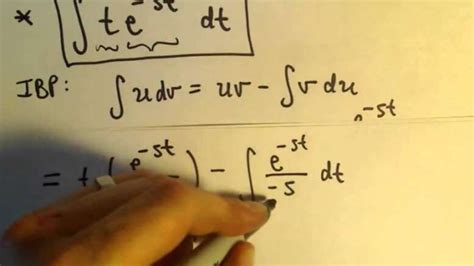 * ∫ t e^{-st} dt
IBP: ∫ u dv = uv - ∫ v du
e^{-st}
= t (e^{-st}) - ∫ e^{-st}/-s dt